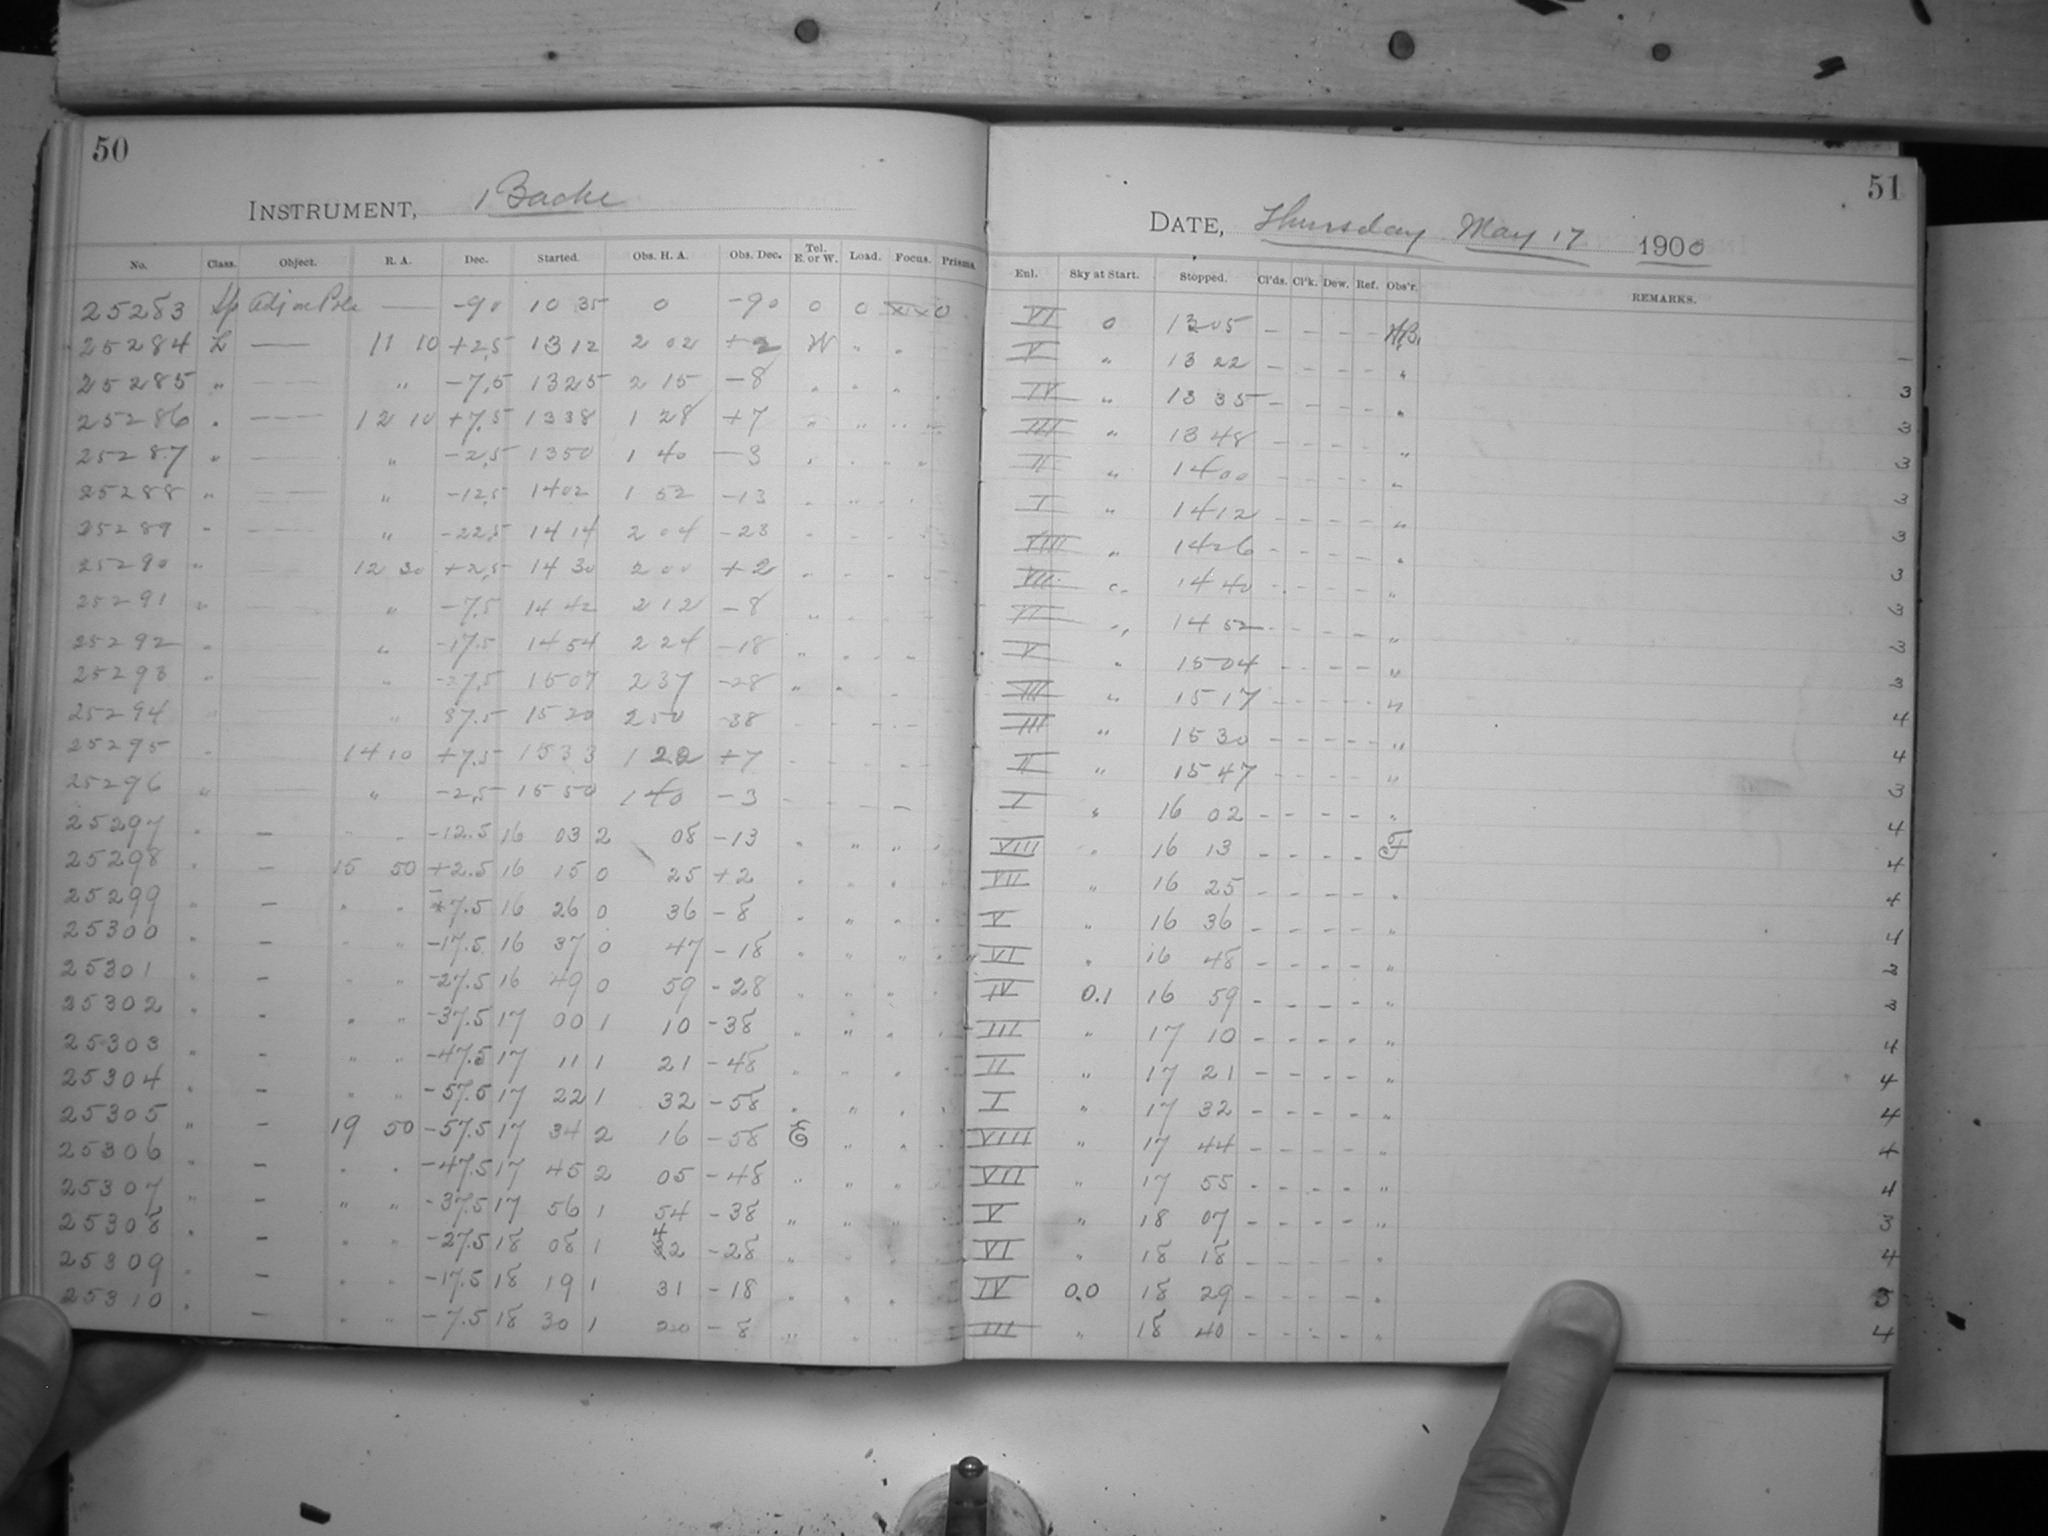 50
INSTRUMENT, Bache
No. Class. Object. R. A. Dec. Started. Obs. H. A. Obs. Dec. Tel. E. or W. Load. Focus. Prisms.
25283 Sp Adj on Pole — -90 10 35 0 -90 0 0 0
25284 L — 11 10 +2.5 13 12 2 02 +2 W " "
25285 " — " -7.5 13 25 2 15 -8 " " " "
25286 " — 12 10 +7.5 13 38 1 28 +7 " " " "
25287 " — " -2.5 13 50 1 40 -3 " " " "
25288 " — " -12.5 14 02 1 52 -13 " " " "
25289 " — " -22.5 14 14 2 04 -23 " " " "
25290 " — 12 30 +2.5 14 30 2 00 +2 " " " "
25291 " — " -7.5 14 42 2 12 -8 " " " "
25292 " — " -17.5 14 54 2 24 -18 " " " "
25293 " — " -27.5 15 07 2 37 -28 " " "
25294 " — " 37.5 15 20 2 50 -38 - - - -
25295 " — 14 10 +7.5 15 33 1 22 +7 - - - -
25296 " — " -2.5 15 50 1 40 -3 - - - -
25297 " — " " -12.5 16 03 2 08 -13 " " " "
25298 " — 15 50 +2.5 16 15 0 25 +2 " " " "
25299 " — " " -7.5 16 26 0 36 -8 " " " "
25300 " — " " -17.5 16 37 0 47 -18 " " " "
25301 " — " " -27.5 16 49 0 59 -28 " " " "
25302 " — " " -37.5 17 00 1 10 -38 " " " "
25303 " — " " -47.5 17 11 1 21 -48 " " " "
25304 " — " " -57.5 17 22 1 32 -58 " " " "
25305 " — 19 50 -57.5 17 34 2 16 -58 E " " "
25306 " — " " -47.5 17 45 2 05 -48 " " " "
25307 " — " " -37.5 17 56 1 54 -38 " " "
25308 " — " " -27.5 18 08 1 42 -28 " " "
25309 " — " " -17.5 18 19 1 31 -18 " " "
25310 " — " " -7.5 18 30 1 20 -8 " " "
51
DATE, Thursday May 17 1900
Enl. Sky at Start. Stopped. Cl'ds. Cl'k. Dew. Ref. Obs'r. REMARKS.
VI 0 13 05 - - - -
V " 13 22 - - - - " —
IV " 13 35 - - - - " 3
III " 13 48 - - - - " 3
II " 14 00 - - - - " 3
I " 14 12 - - - - " 3
VIII " 14 26 - - - - " 3
VII " 14 40 - - - - " 3
VI " 14 52 - - - - " 3
V " 15 04 - - - - " 3
III " 15 17 - - - - " 3
III " 15 30 - - - - " 4
II " 15 47 - - - - " 4
I " 16 02 - - - - " 3
VIII " 16 13 - - - - F 4
VII " 16 25 - - - - " 4
V " 16 36 - - - - " 4
VI " 16 48 - - - - " 4
IV 0.1 16 59 - - - - " 3
III " 17 10 - - - - " 3
II " 17 21 - - - - " 4
I " 17 32 - - - - " 4
VIII " 17 44 - - - - " 4
VII " 17 55 - - - - " 4
V " 18 07 - - - - " 4
VI " 18 18 - - - - " 3
IV 0.0 18 29 - - - - " 4
III " 18 40 - - - - " 5
4